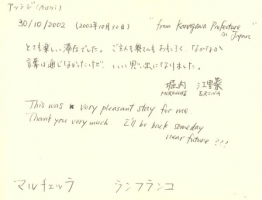 30/10/2002 (2002年10月30日) "from Kanagawa Prefecture
in Japan
とても楽しい滞在でした。ごはんも景色もおもしろく なかなか
言葉は通じなかったけど、いい思い出になりました。
堀内 江里菜
HORIUCHI ERINA
This was a very pleasant stay for me.
Thank you very much I'll be back someday
near future !!!
マルチェッラ ランフランコ